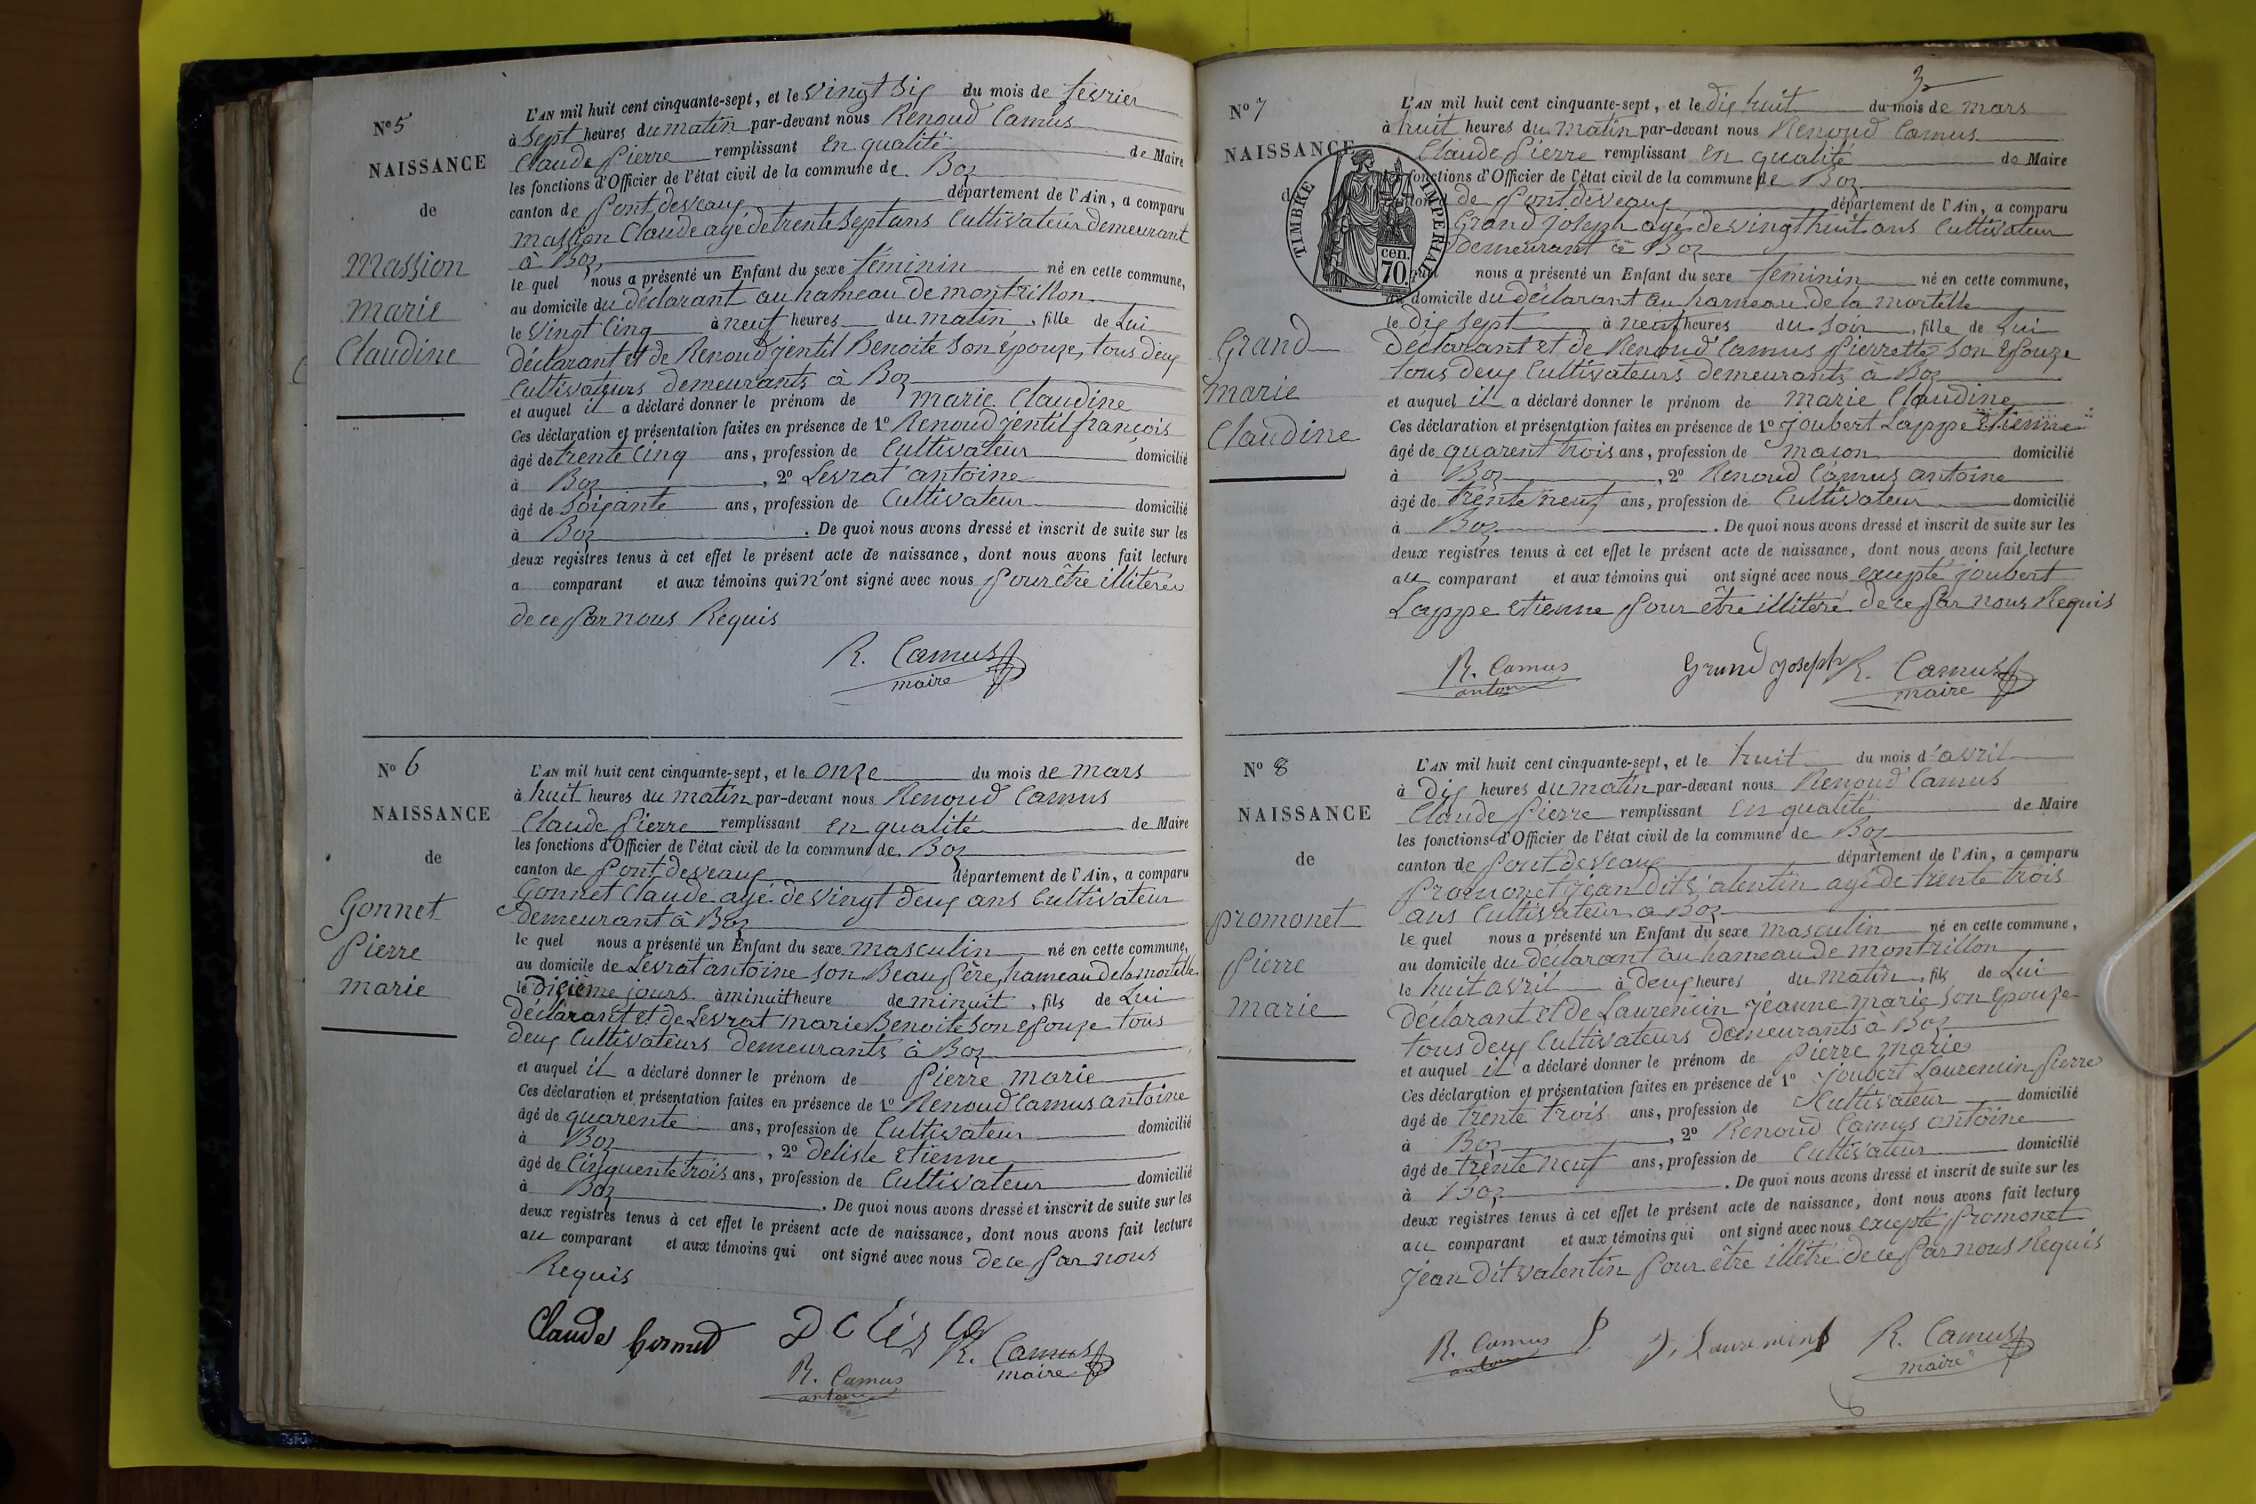 N° 5
NAISSANCE
de
Massion
marie
Claudine
L'AN mil huit cent cinquante-sept, et le vingt Six du mois de fevrier
à Sept heures du matin par-devant nous Renoud Camus
Claude Pierre remplissant en qualité de Maire
les fonctions d'Officier de l'état civil de la commune de Boz
canton de Pontdeveaux département de l'Ain, a comparu
Massion Claude agé de trente Sept ans Cultivateur demeurant
à Boz
le quel nous a présenté un Enfant du sexe féminin né en cette commune,
au domicile du déclarant au hameau de montrillon
le vingt Cinq à neuf heures du matin, fille de Lui
déclarant et de Renoud jentil Benoite Son épouze, tous deux
Cultivateurs demeurants à Boz
et auquel il a déclaré donner le prénom de marie Claudine
Ces déclaration et présentation faites en présence de 1° Renoud jentil françois
âgé de trente Cinq ans, profession de Cultivateur domicilié
à Boz, 2° Levrat antoine
âgé de Soixante ans, profession de Cultivateur domicilié
à Boz. De quoi nous avons dressé et inscrit de suite sur les
deux registres tenus à cet effet le présent acte de naissance, dont nous avons fait lecture
a comparant et aux témoins qui n'ont signé avec nous Pour être illiterés
de ce Par nous Requis
R. Camus
maire
N° 6
NAISSANCE
de
Gonnet
Pierre
marie
L'AN mil huit cent cinquante-sept, et le onze du mois de mars
à huit heures du matin par-devant nous Renoud Camus
Claude Pierre remplissant en qualité de Maire
les fonctions d'Officier de l'état civil de la commune de Boz
canton de Pontdeveaux département de l'Ain, a comparu
Gonnet Claude agé de vingt deux ans Cultivateur
demeurant à Boz
le quel nous a présenté un Enfant du sexe masculin né en cette commune,
au domicile de Levrat antoine Son Beau Père, hameau de la mortelle
le dixième jours à minuit heure de minuit, fils de Lui
déclarant et de Levrat marie Benoite Son Epouze tous
deux Cultivateurs demeurants à Boz
et auquel il a déclaré donner le prénom de Pierre marie
Ces déclaration et présentation faites en présence de 1° Renoud Camus antoine
âgé de quarente ans, profession de Cultivateur domicilié
à Boz, 2° delisle Etienne
âgé de Cinquente trois ans, profession de Cultivateur domicilié
à Boz. De quoi nous avons dressé et inscrit de suite sur les
deux registres tenus à cet effet le présent acte de naissance, dont nous avons fait lecture
au comparant et aux témoins qui ont signé avec nous de ce Par nous
Requis
Claude
R. Camus
maire
R. Camus
antoine
3
N° 7
NAISSANCE
de
Grand
marie
Claudine
TIMBRE IMPERIAL
70 cen.
L'AN mil huit cent cinquante-sept, et le dix huit du mois de mars
à huit heures du matin par-devant nous Renoud Camus
Claude Pierre remplissant en qualité de Maire
fonctions d'Officier de l'état civil de la commune de Boz
de Pontdeveaux département de l'Ain, a comparu
Grand Joseph agé de vingt huit ans Cultivateur
demeurant à Boz
quel nous a présenté un Enfant du sexe féminin né en cette commune,
au domicile du déclarant au hameau de la mortelle
le dix sept à neuf heures du soir, fille de Lui
déclarant et de Renoud Camus Pierrette Son Epouze
tous deux Cultivateurs demeurants à Boz
et auquel il a déclaré donner le prénom de marie Claudine
Ces déclaration et présentation faites en présence de 1° joubert Lappe Etienne
âgé de quarent trois ans, profession de macon domicilié
à Boz, 2° Renoud Camus antoine
âgé de trente neuf ans, profession de Cultivateur domicilié
à Boz. De quoi nous avons dressé et inscrit de suite sur les
deux registres tenus à cet effet le présent acte de naissance, dont nous avons fait lecture
au comparant et aux témoins qui ont signé avec nous excepté joubert
Lappe etienne Pour être illitéré de ce Par nous Requis
R. Camus
antoine
Grand Joseph
R. Camus
maire
N° 8
NAISSANCE
de
promonet
Pierre
marie
L'AN mil huit cent cinquante-sept, et le huit du mois d'avril
à Dix heures du matin par-devant nous Renoud Camus
Claude Pierre remplissant en qualité de Maire
les fonctions d'Officier de l'état civil de la commune de Boz
canton de Pontdeveaux département de l'Ain, a comparu
Promonet jean dit valentin agé de trente trois
ans Cultivateur a Boz
le quel nous a présenté un Enfant du sexe masculin né en cette commune,
au domicile du déclarant au hameau de montrillon
le huit avril à deux heures du matin, fils de Lui
déclarant et de Laurencin jéanne marie Son Epouze
tous deux Cultivateurs demeurants à Boz
et auquel il a déclaré donner le prénom de Pierre marie
Ces déclaration et présentation faites en présence de 1° joubert Laurencin Pierre
âgé de trente trois ans, profession de Cultivateur domicilié
à Boz, 2° Renoud Camus antoine
âgé de trente neuf ans, profession de Cultivateur domicilié
à Boz. De quoi nous avons dressé et inscrit de suite sur les
deux registres tenus à cet effet le présent acte de naissance, dont nous avons fait lecture
au comparant et aux témoins qui ont signé avec nous excepté Promonet
jean dit valentin Pour être illétré de ce Par nous Requis
R. Camus
antoine
R. Camus
maire